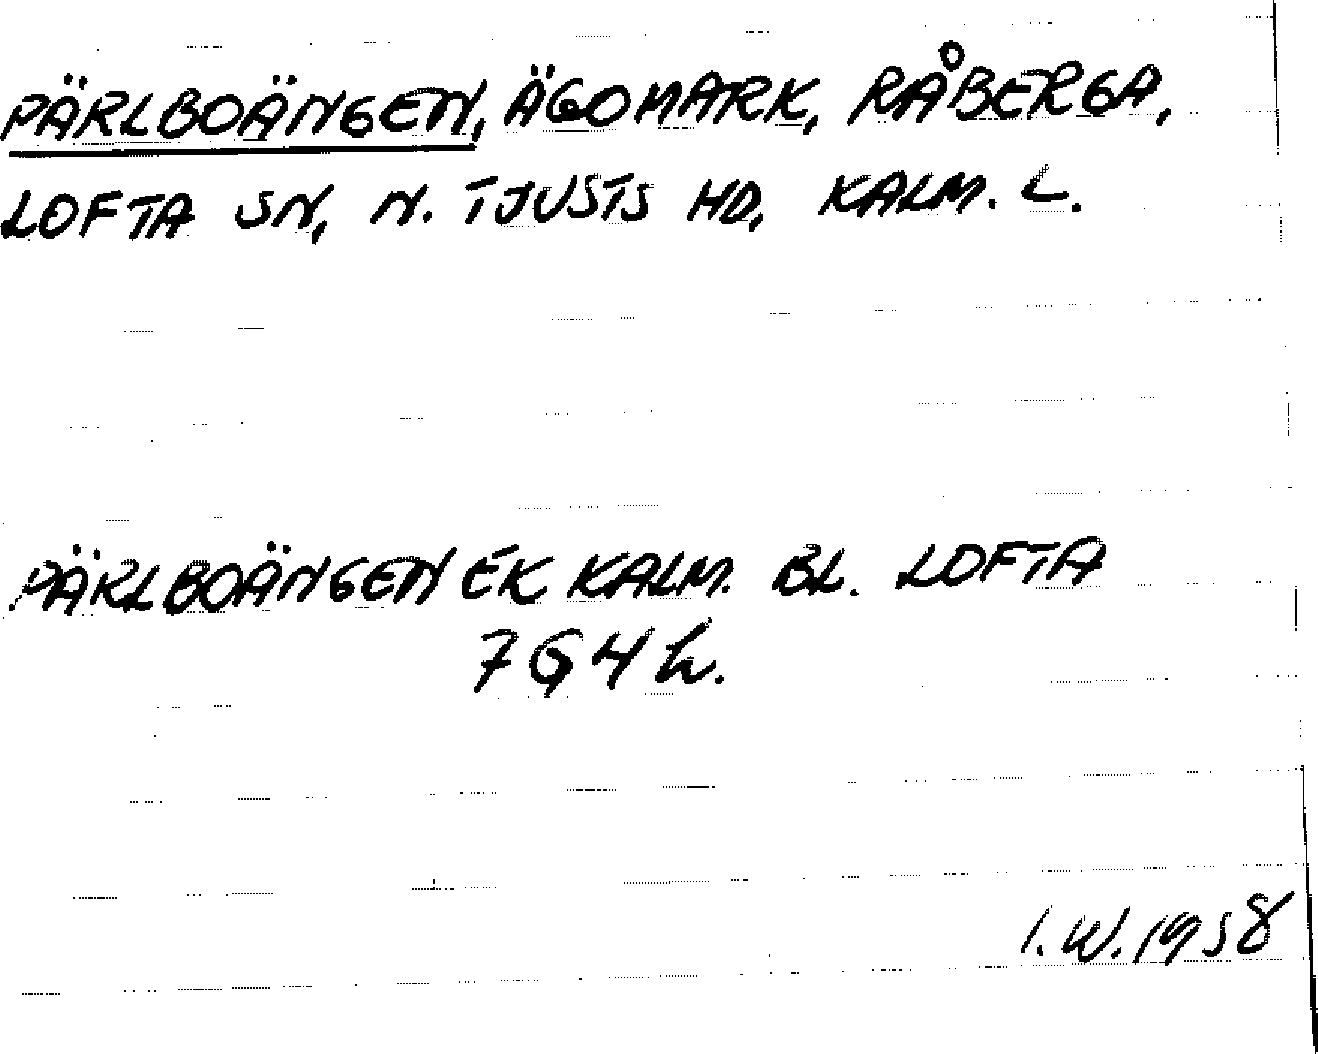 PÄRLBOÄNGEN, ÄGOMARK, RÅBERGA,
LOFTA SN, N. TJUSTS HD, KALM. L.
PÄRLBOÄNGEN EK KALM. BL. LOFTA
7G4h.
I.W. 1958